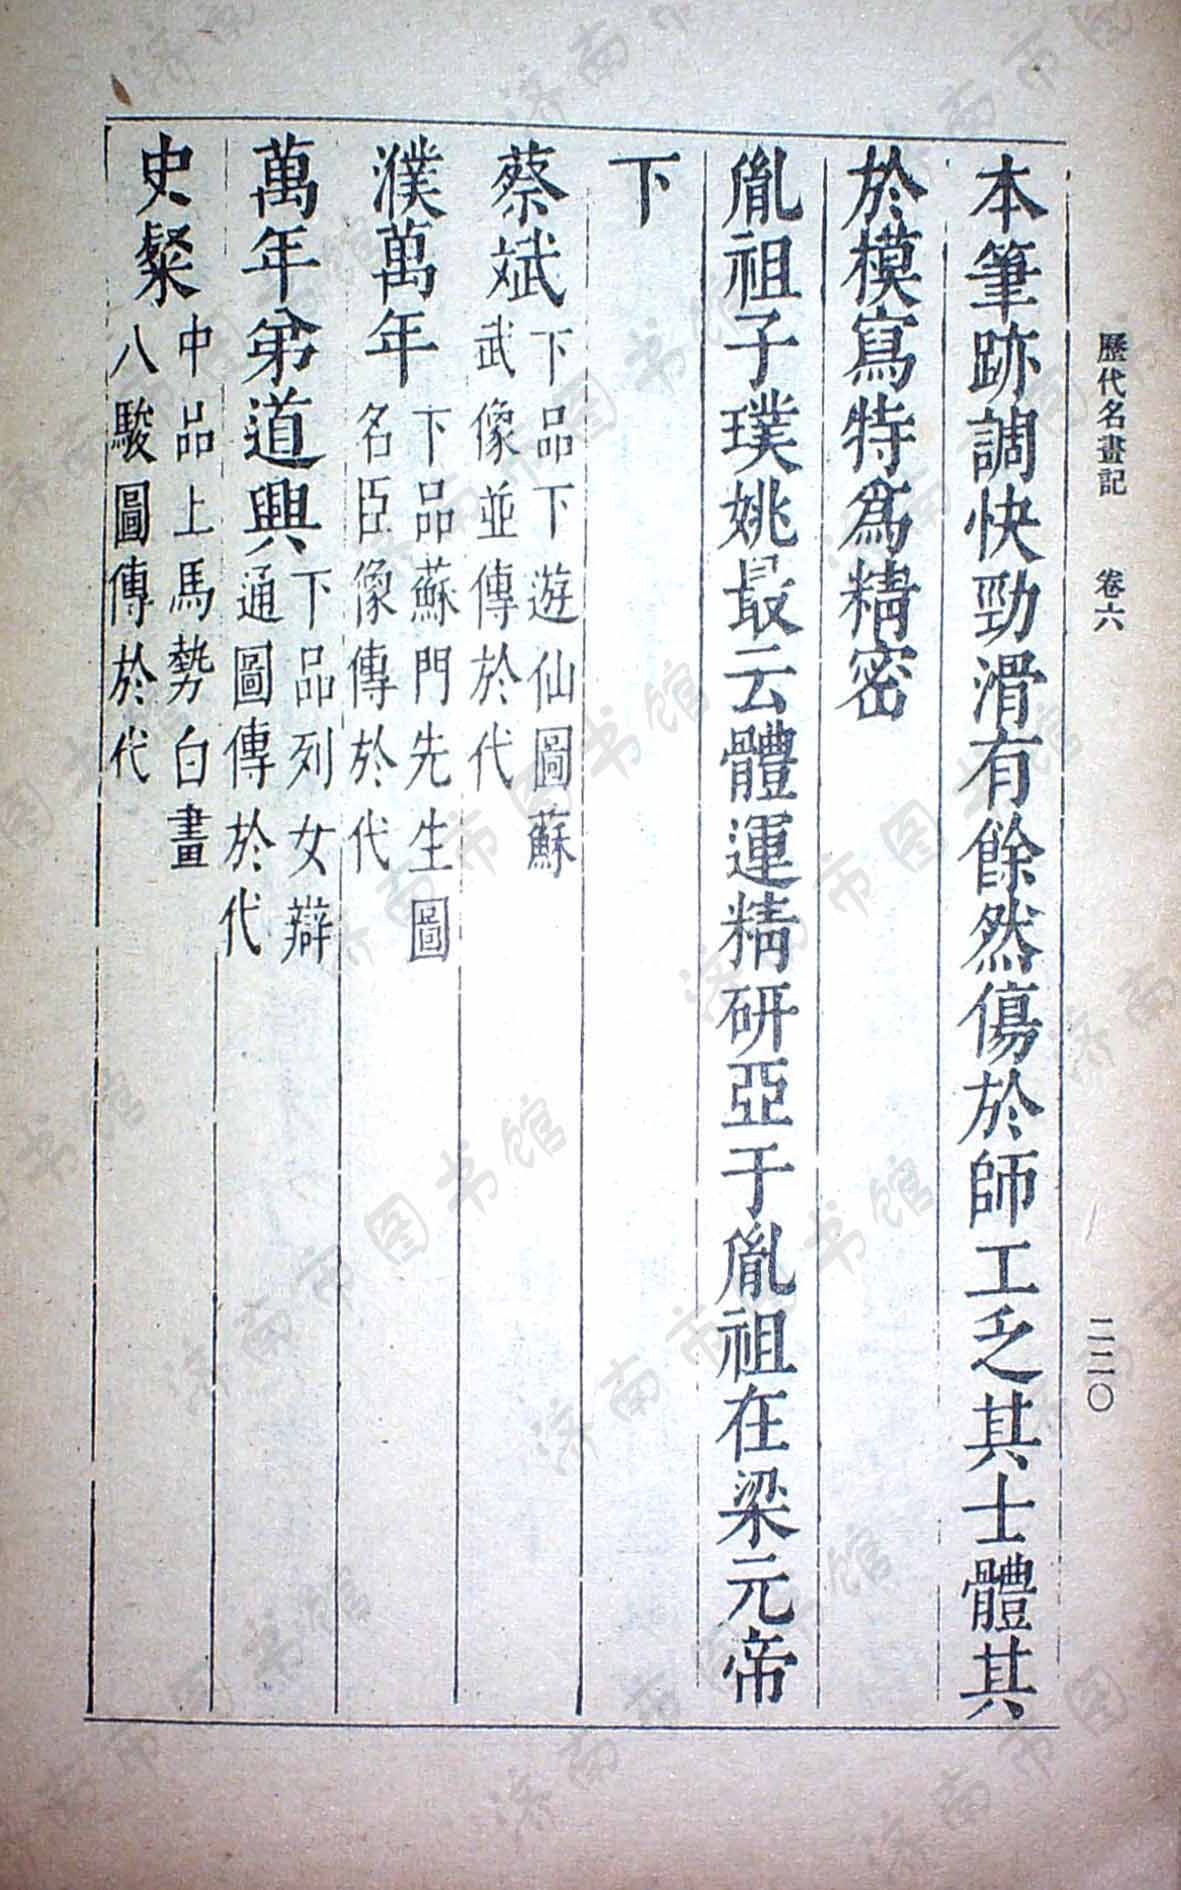 歷代名畫記 卷六 二二〇
本筆跡調快勁滑有餘然傷於師工乏其士體其
於模寫特爲精密
胤祖子璞姚最云體運精研亞于胤祖在梁元帝
下
蔡斌下品下遊仙圖蘇
武像並傳於代
濮萬年下品蘇門先生圖
名臣像傳於代
萬年弟道興下品列女辯
通圖傳於代
史粲中品上馬勢白畫
八駿圖傳於代
济南市图书馆